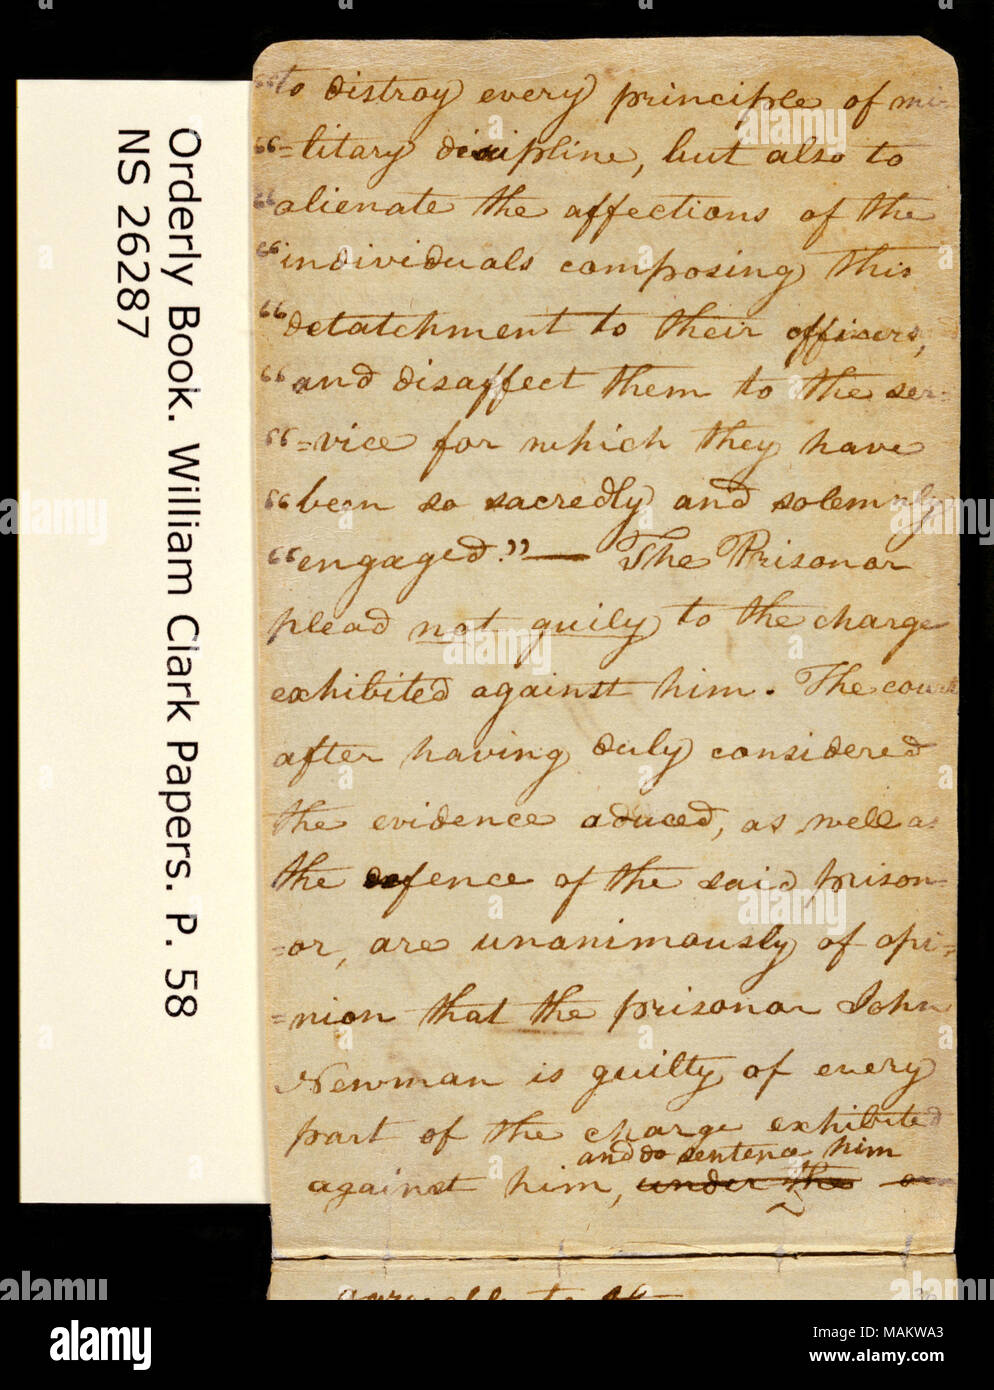 “to distroy every principle of mi-
“=litary dicipline, but also to
“alienate the affections of the
“individuals composing this
“detatchment to their officers,
“and disaffect them to the ser=
“=vice for which they have
“been so sacredly and solemnly
“engaged.”— The Prisonor
plead not guily to the charge
exhibited against him. The court
after having duly considered
the evidence aduced, as well as
the defence of the said prison=
=or, are unanimously of opi=
=nion that the prisonor John
Newman is guilty of every
part of the charge exhibited
and do sentence him
against him, under the
Orderly Book. William Clark Papers. P. 58
NS 26287
alamy
Image ID: MAKWA3
www.alamy.com